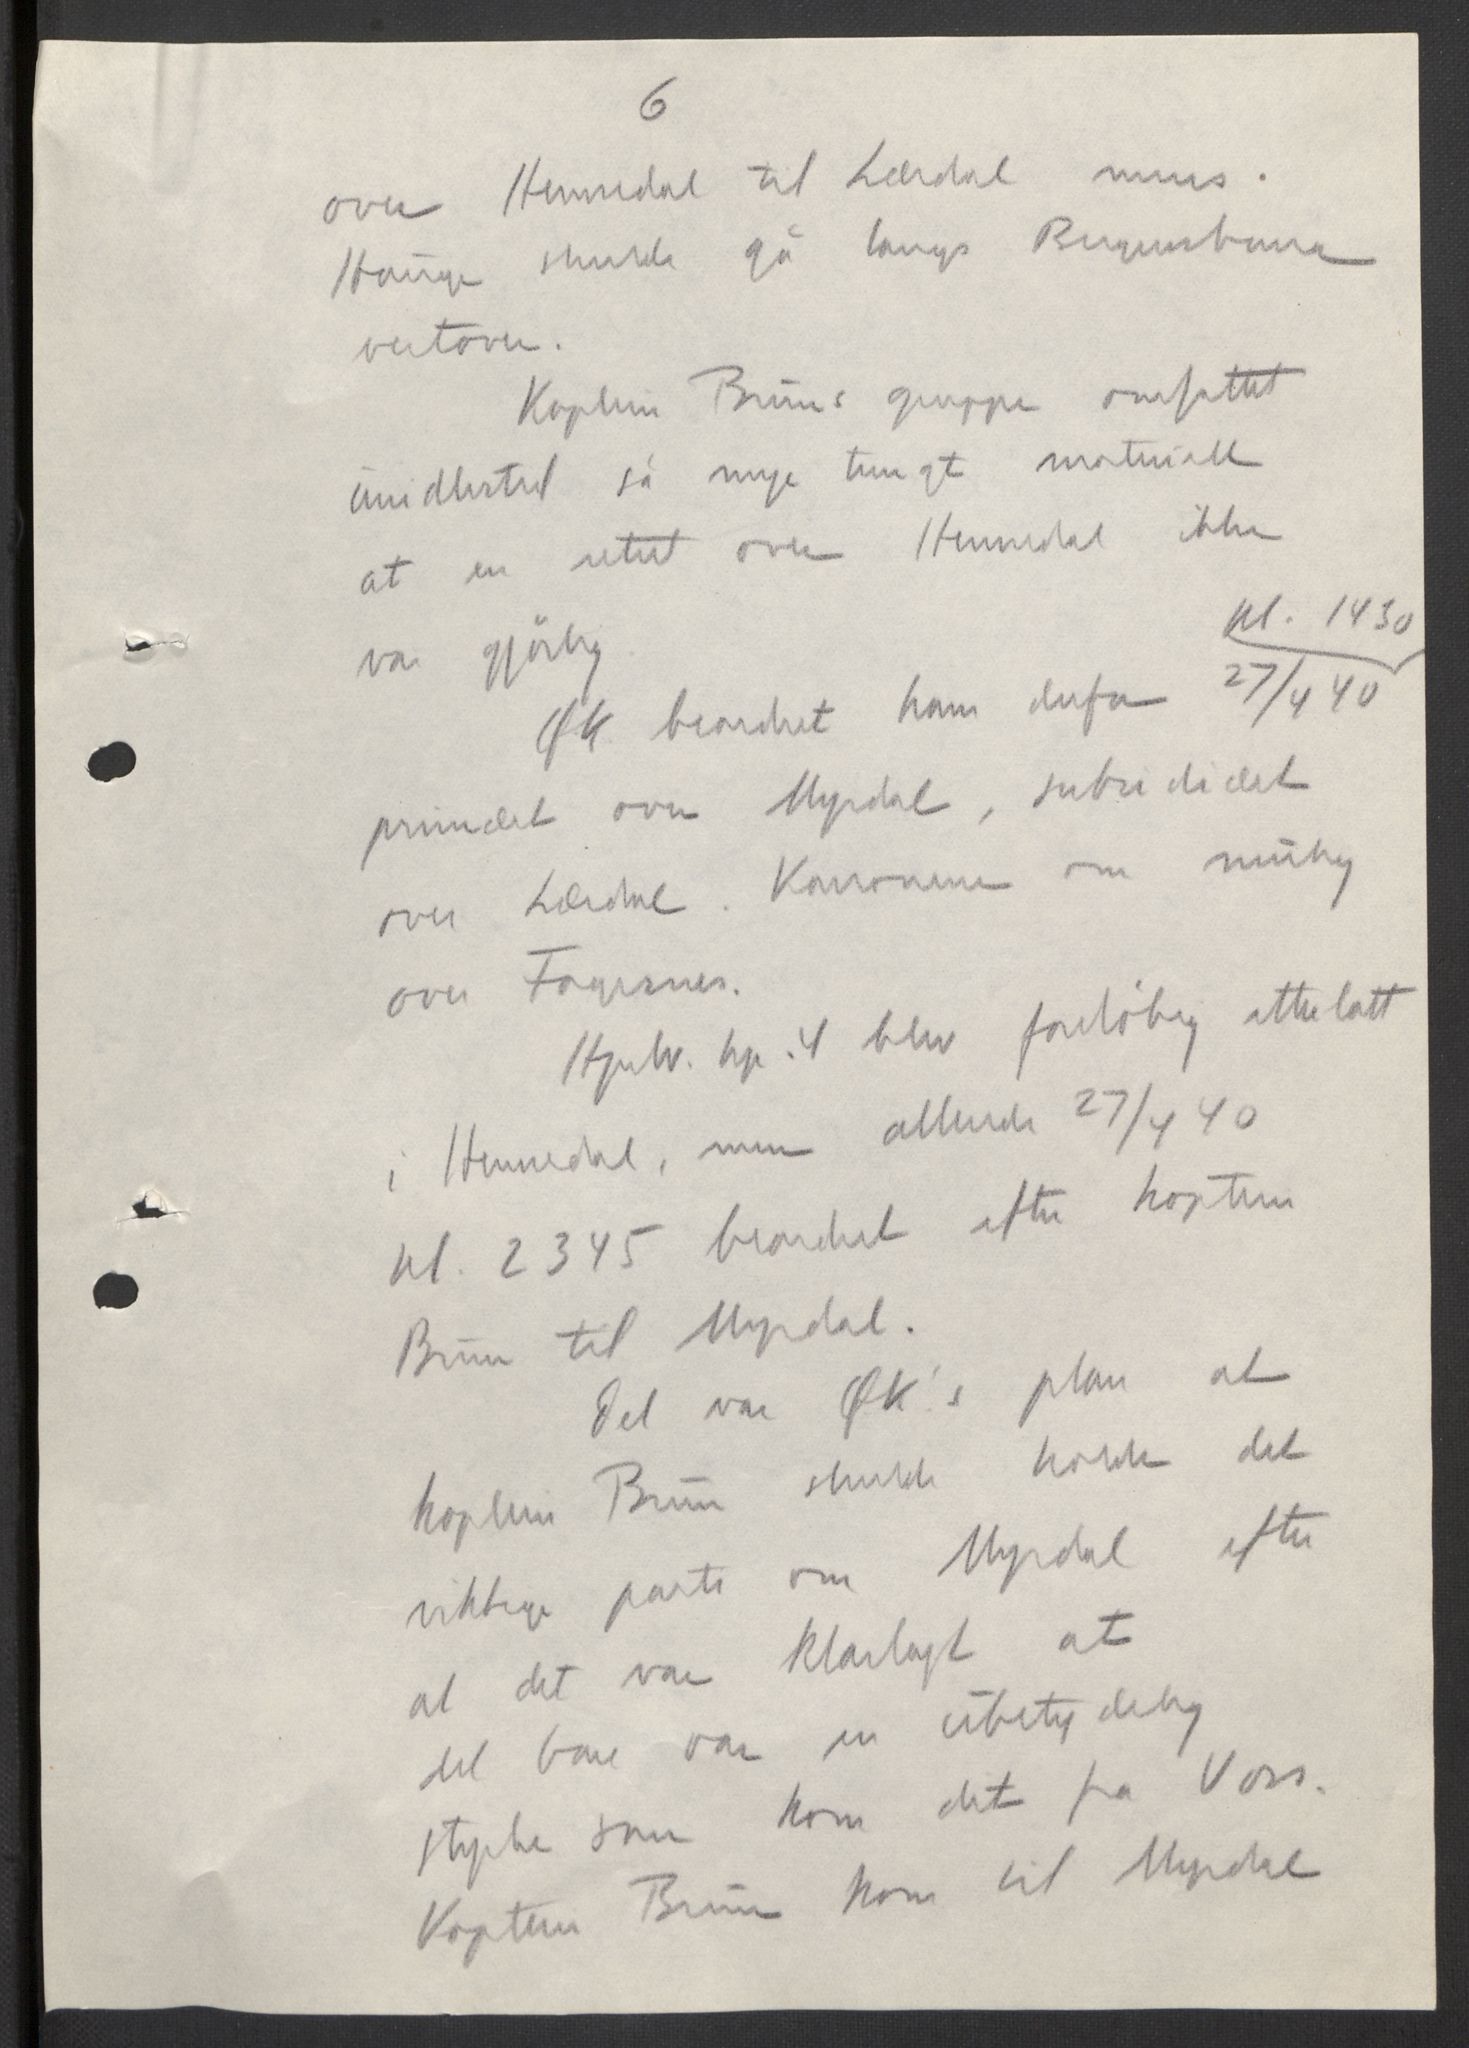 6
over Hemsedal til Lærdal mens.
Hauge skulde gå langs Bergensbana
vestover.
Kaptein Bruns gruppe omfattet
imidlertid så mye tungt materiell
at en retrett over Hemsedal ikke
var gjørlig
kl. 1430
ØK beordret ham derfor 27/4 40
primært over Myrdal, subsidiært
over Lærdal. Kanonene om mulig
over Fagernes.
Hjulr. kp. 4 blev foreløbig etterlatt
i Hemsedal, men allerede 27/4 40
kl. 2345 beordret efter kaptein
Brun til Myrdal.
Det var ØK's plan at
kaptein Brun skulde holde det
viktige parti om Myrdal efter
at det var klarlagt at
det bare var en ubetydelig
styrke som kom dit fra Voss.
Kaptein Brun kom til Myrdal